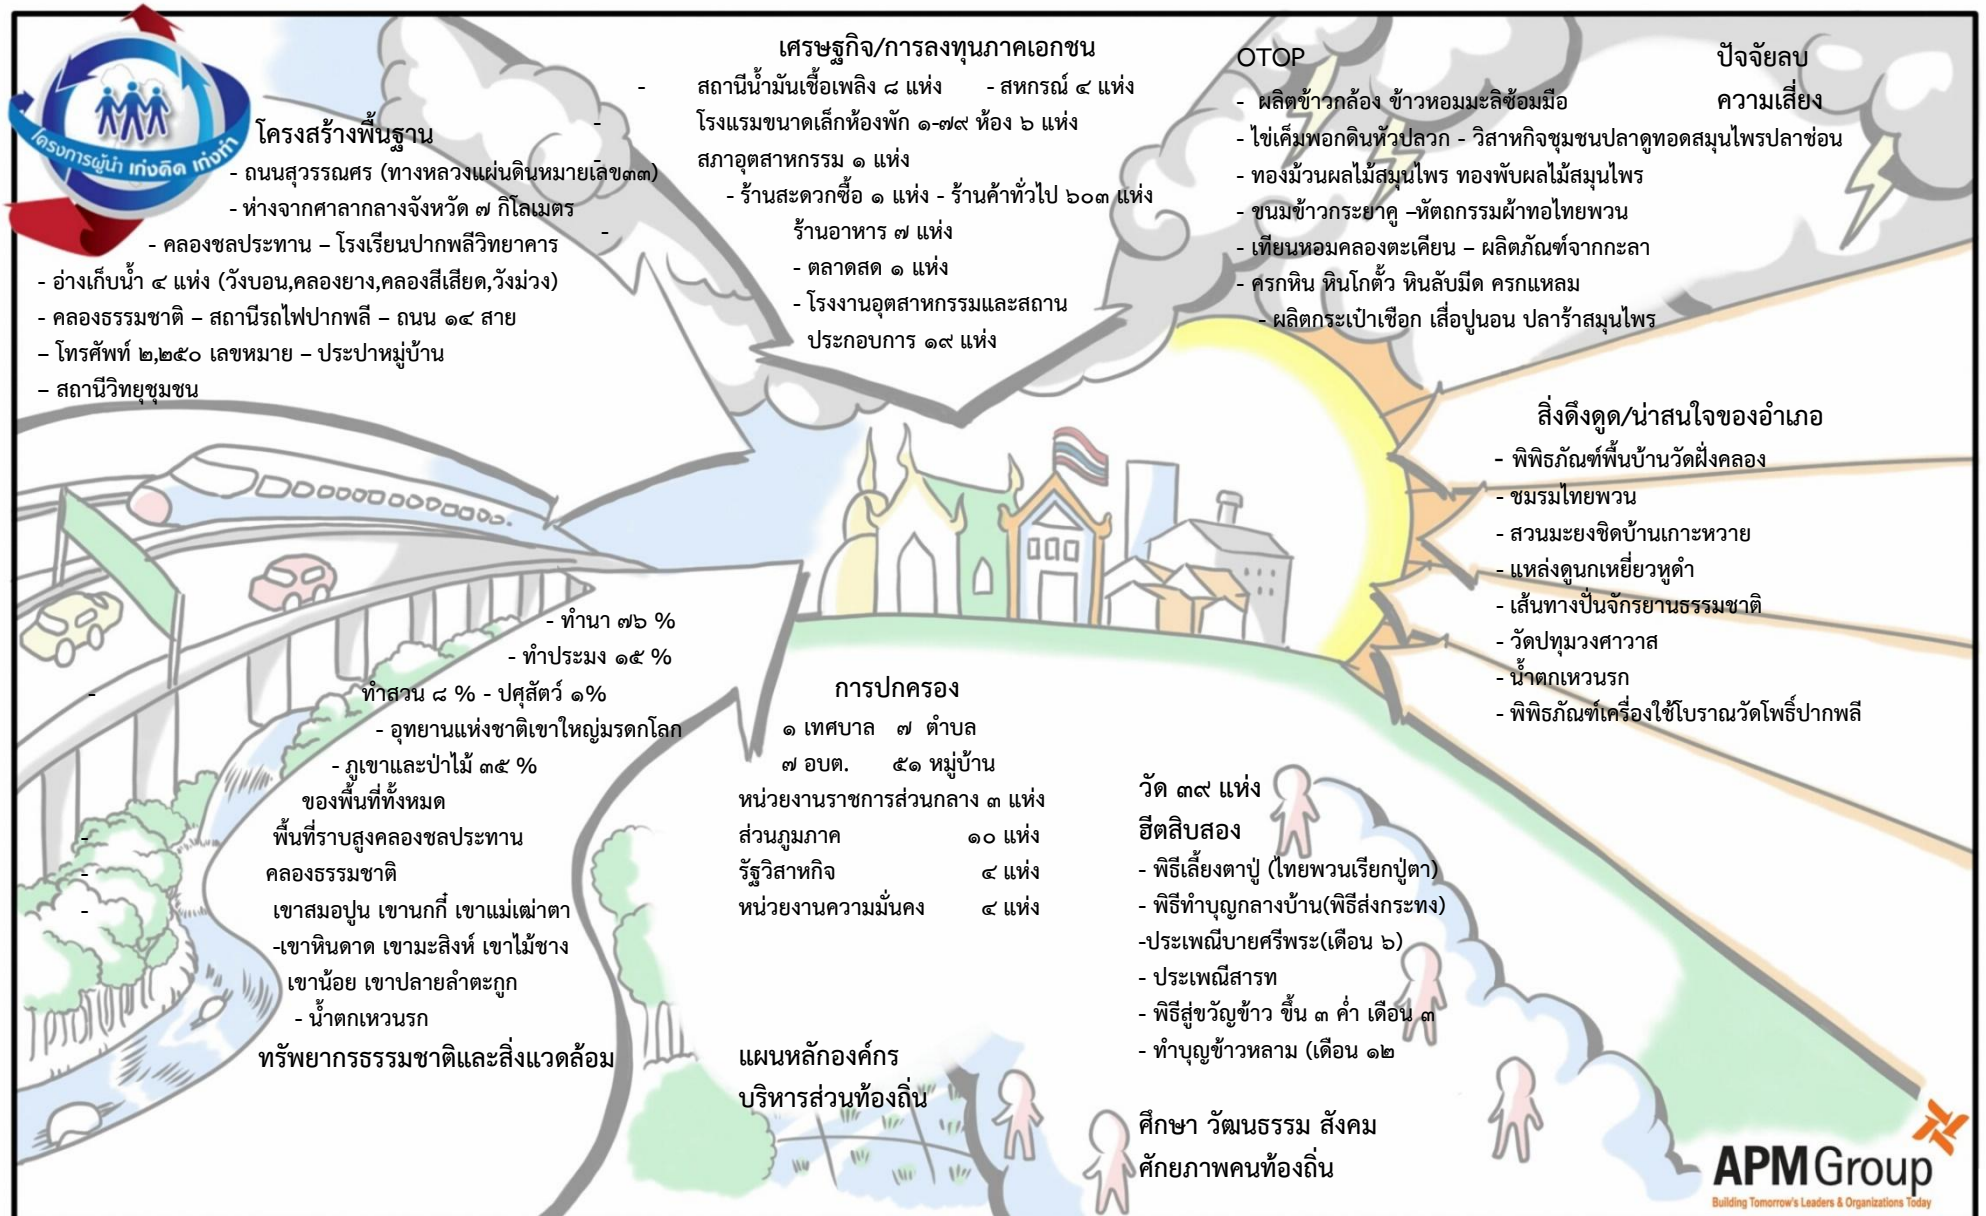 โครงการผู้นำ เก่งคิด เก่งทำ
โครงสร้างพื้นฐาน
- ถนนสุวรรณศร (ทางหลวงแผ่นดินหมายเลข๓๓)
- ห่างจากศาลากลางจังหวัด ๗ กิโลเมตร
- คลองชลประทาน – โรงเรียนปากพลีวิทยาคาร
- อ่างเก็บน้ำ ๔ แห่ง (วังบอน,คลองยาง,คลองสีเสียด,วังม่วง)
- คลองธรรมชาติ – สถานีรถไฟปากพลี – ถนน ๑๔ สาย
– โทรศัพท์ ๒,๒๕๐ เลขหมาย – ประปาหมู่บ้าน
– สถานีวิทยุชุมชน
เศรษฐกิจ/การลงทุนภาคเอกชน
- สถานีน้ำมันเชื้อเพลิง ๘ แห่ง - สหกรณ์ ๔ แห่ง
- โรงแรมขนาดเล็กห้องพัก ๑-๗๙ ห้อง ๖ แห่ง
- สภาอุตสาหกรรม ๑ แห่ง
- ร้านสะดวกซื้อ ๑ แห่ง - ร้านค้าทั่วไป ๖๐๓ แห่ง
- ร้านอาหาร ๗ แห่ง
- ตลาดสด ๑ แห่ง
- โรงงานอุตสาหกรรมและสถาน
ประกอบการ ๑๙ แห่ง
OTOP
- ผลิตข้าวกล้อง ข้าวหอมมะลิซ้อมมือ
- ไข่เค็มพอกดินหัวปลวก - วิสาหกิจชุมชนปลาดูทอดสมุนไพรปลาช่อน
- ทองม้วนผลไม้สมุนไพร ทองพับผลไม้สมุนไพร
- ขนมข้าวกระยาคู –หัตถกรรมผ้าทอไทยพวน
- เทียนหอมคลองตะเคียน – ผลิตภัณฑ์จากกะลา
- ครกหิน หินโกตั้ว หินลับมีด ครกแหลม
- ผลิตกระเป๋าเชือก เสื่อปูนอน ปลาร้าสมุนไพร
ปัจจัยลบ
ความเสี่ยง
สิ่งดึงดูด/น่าสนใจของอำเภอ
- พิพิธภัณฑ์พื้นบ้านวัดฝั่งคลอง
- ชมรมไทยพวน
- สวนมะยงชิดบ้านเกาะหวาย
- แหล่งดูนกเหยี่ยวหูดำ
- เส้นทางปั่นจักรยานธรรมชาติ
- วัดปทุมวงศาวาส
- น้ำตกเหวนรก
- พิพิธภัณฑ์เครื่องใช้โบราณวัดโพธิ์ปากพลี
- ทำนา ๗๖ %
- ทำประมง ๑๕ %
- ทำสวน ๘ % - ปศุสัตว์ ๑%
- อุทยานแห่งชาติเขาใหญ่มรดกโลก
- ภูเขาและป่าไม้ ๓๕ %
ของพื้นที่ทั้งหมด
- พื้นที่ราบสูงคลองชลประทาน
- คลองธรรมชาติ
- เขาสมอปูน เขานกกี๋ เขาแม่เฒ่าตา
-เขาหินดาด เขามะสิงห์ เขาไม้ชาง
เขาน้อย เขาปลายลำตะกูก
- น้ำตกเหวนรก
ทรัพยากรธรรมชาติและสิ่งแวดล้อม
การปกครอง
๑ เทศบาล ๗ ตำบล
๗ อบต. ๕๑ หมู่บ้าน
หน่วยงานราชการส่วนกลาง ๓ แห่ง
ส่วนภูมภาค ๑๐ แห่ง
รัฐวิสาหกิจ ๔ แห่ง
หน่วยงานความมั่นคง ๔ แห่ง
แผนหลักองค์กร
บริหารส่วนท้องถิ่น
วัด ๓๙ แห่ง
ฮีตสิบสอง
- พิธีเลี้ยงตาปู่ (ไทยพวนเรียกปู่ตา)
- พิธีทำบุญกลางบ้าน(พิธีส่งกระทง)
-ประเพณีบายศรีพระ(เดือน ๖)
- ประเพณีสารท
- พิธีสู่ขวัญข้าว ขึ้น ๓ ค่ำ เดือน ๓
- ทำบุญข้าวหลาม (เดือน ๑๒
ศึกษา วัฒนธรรม สังคม
ศักยภาพคนท้องถิ่น
APMGroup
Building Tomorrow's Leaders & Organizations Today